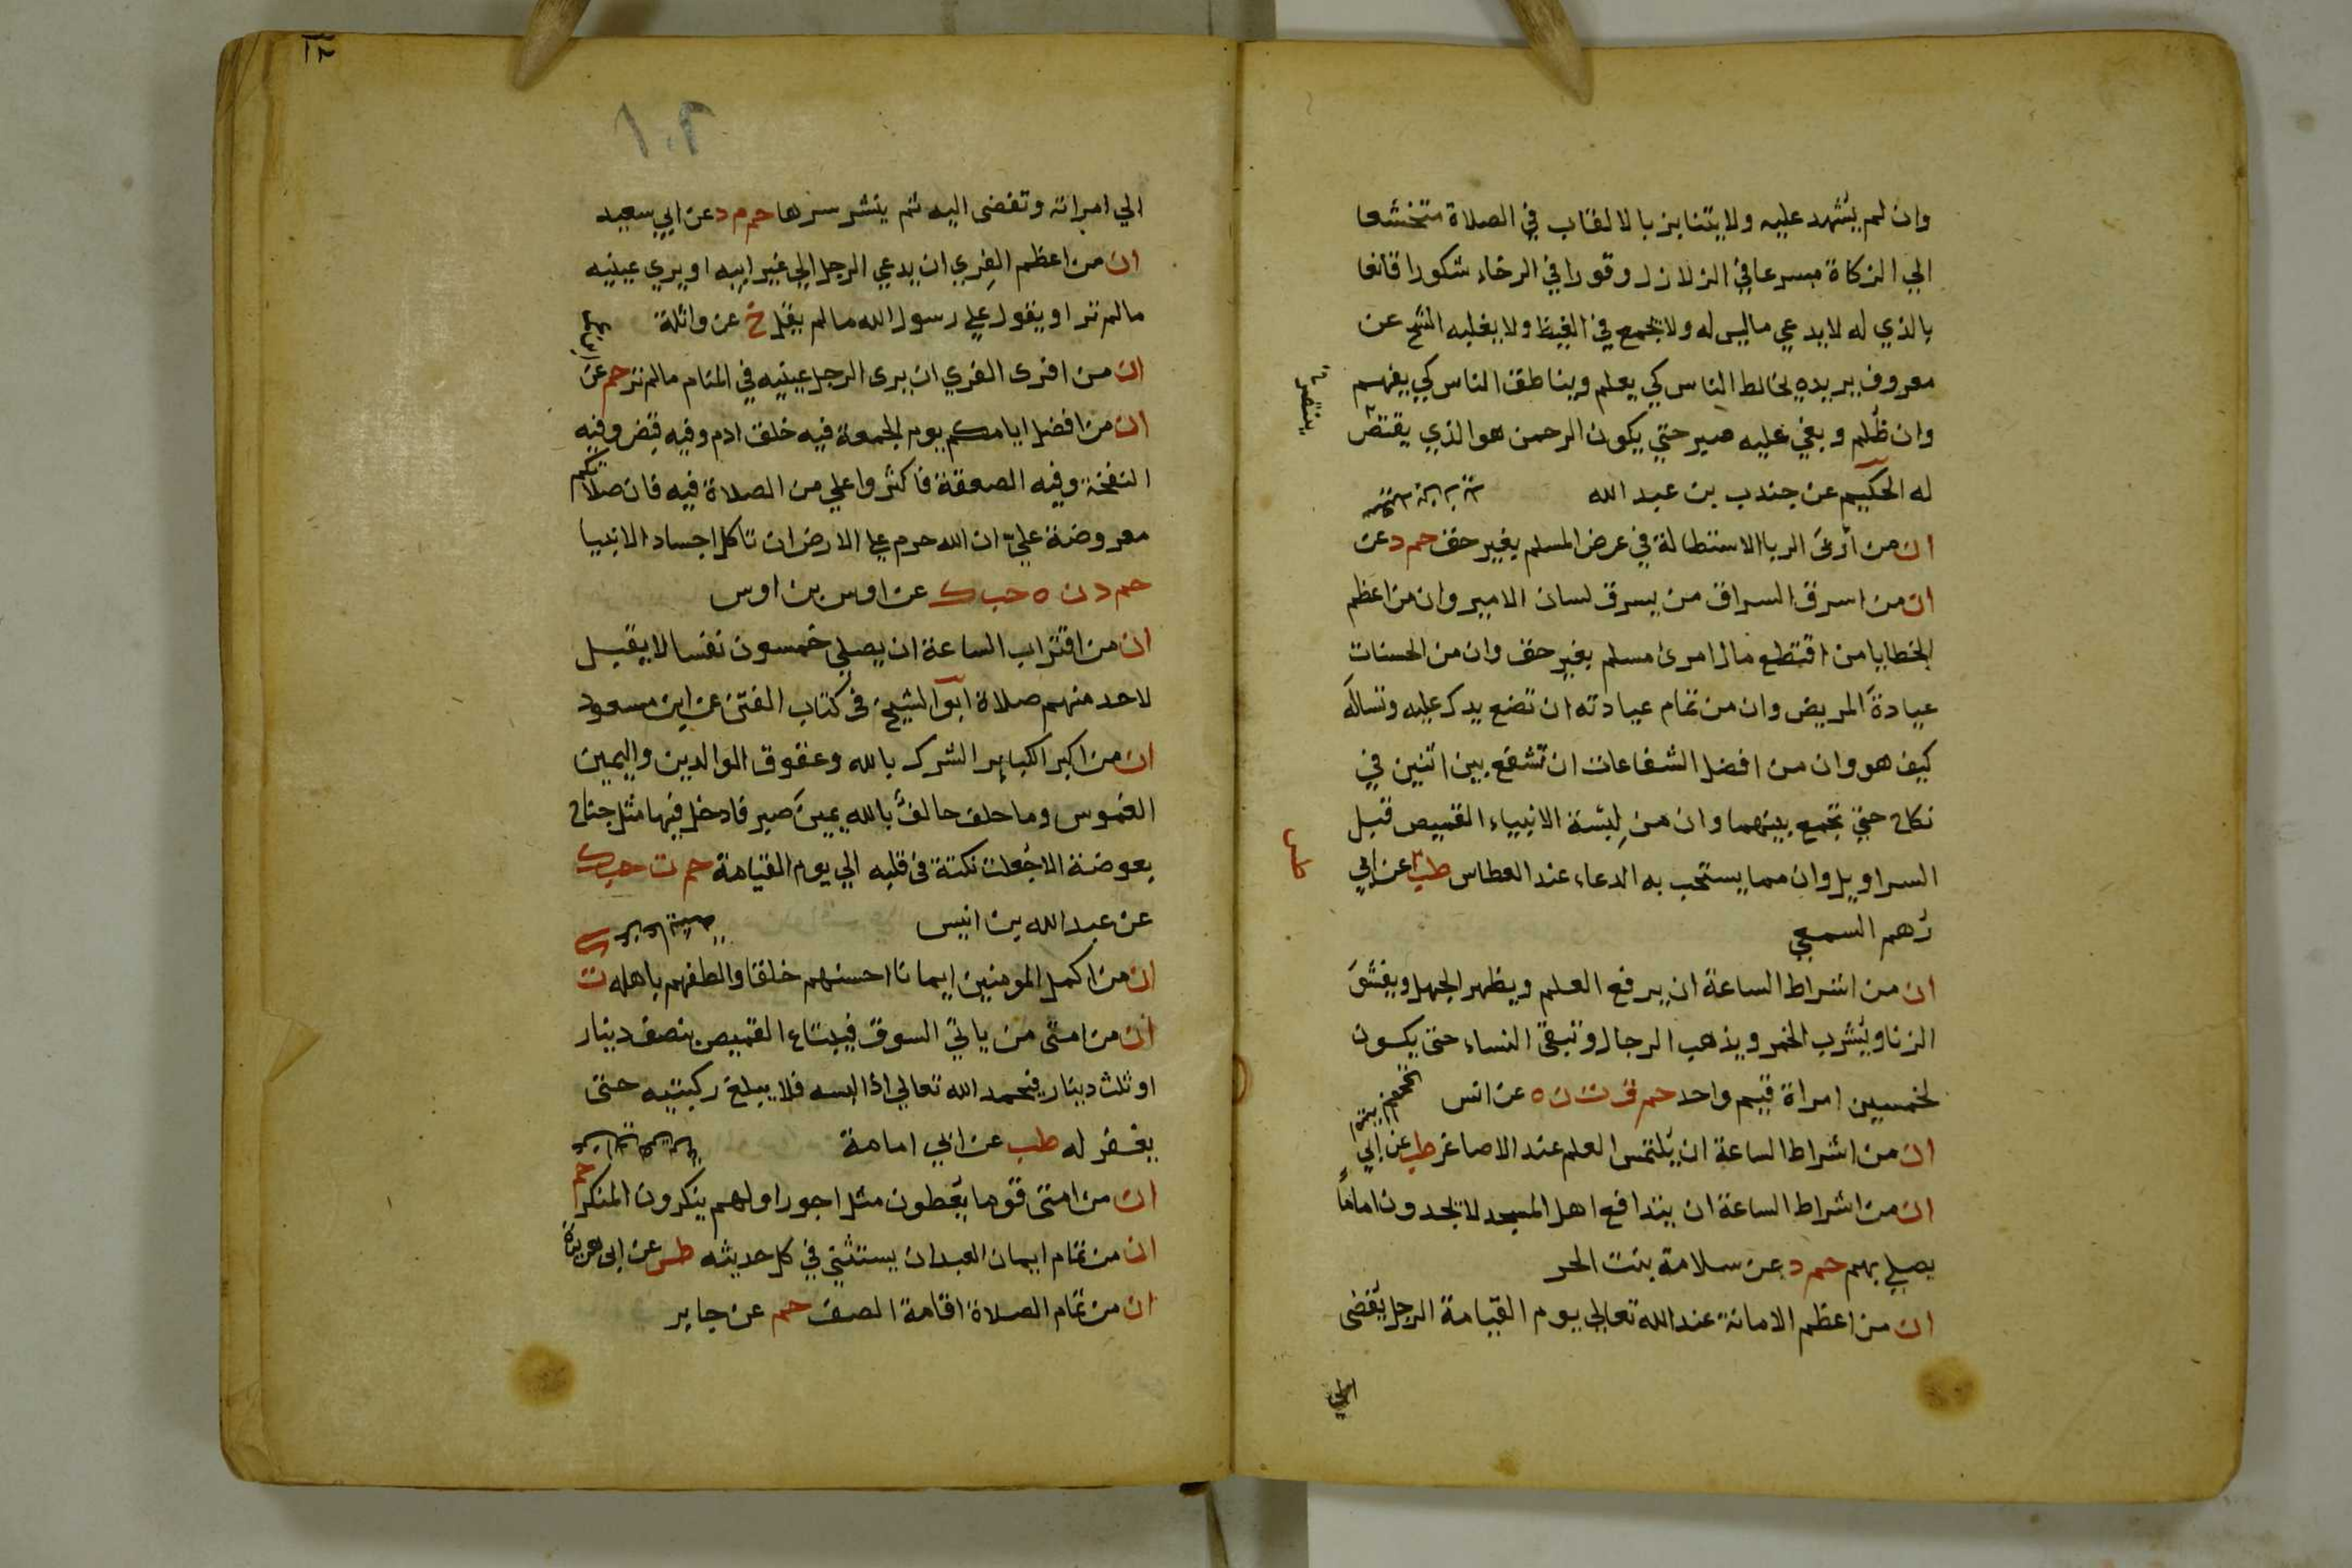 وان لم يشهد عليه ولا يتنابز بالالقاب في الصلاة متخشعا
الي الزكاة مسرعا في الزلازل وقورا في الرخاء شكورا قانعا
بالذي له لا يدعي ما ليس له ولا يجمع في الغيظ ولا يغلبه الشح عن
معروف يريده يخالط الناس كي يعلم ويناطق الناس كي يفهم
وان ظُلم وبغي عليه صبر حتي يكون الرحمن هو الذي يقتص
ينتصر
له الحكيم عن جندب بن عبد الله
ان من أربى الربا الاستطالة في عرض المسلم بغير حق حم د عن
ان من اسرق السراق من يسرق لسان الامير وان من اعظم
الخطايا من اقتطع مال امرئ مسلم بغير حق وان من الحسنات
عيادة المريض وان من تمام عيادته ان تضع يدك عليه وتساله
كيف هو وان من افضل الشفاعات ان تشفع بين اثنين في
نكاح حتي تجمع بينهما وان من لِبسة الانبياء القميص قبل
السراويل وان مما يستجب به الدعاء عند العطاس طب عن ابي
رُهم السمعي
ان من اشراط الساعة ان يرفع العلم ويظهر الجهل ويفشوَ
الزنا ويُشرب الخمر ويذهب الرجال وتبقى النساء حتى يكون
لخمسين امراة قيم واحد حم ق ت ن ه عن انس
ان من اشراط الساعة ان يُلتمس العلم عند الاصاغر طب عن ابي
ان من اشراط الساعة ان يتدافع اهل المسجد لا يجدون اماماً
يصلي بهم حم د عن سلامة بنت الحر
ان من اعظم الامانة عند الله تعالي يوم القيامة الرجل يُفضي
الي
١٢
١٠٢
الي امراته وتفضى اليه ثم ينشر سرها حم م د عن ابي سعيد
ان من اعظم الفِري ان يدعي الرجل الي غير ابيه او يري عينيه
مالم تر او يقول علي رسول الله مالم يقل خ عن واثلة
ان من افرى الفري ان يرى الرجل عينيه في المنام مالم تر حم عن
ان من افضل ايامكم يوم الجمعة فيه خلق ادم وفيه قبض وفيه
النفخة وفيه الصعقة فاكثروا علي من الصلاة فيه فان صلاتكم
معروضة علي ان الله حرم علي الارض ان تاكل اجساد الانبيا
حم د ن ه حب ك عن اوس بن اوس
ان من اقتراب الساعة ان يصلي خمسون نفسا لا يقبل
لاحد منهم صلاة ابو الشيخ في كتاب الفتن عن ابن مسعود
ان من اكبر الكباير الشرك بالله وعقوق الوالدين واليمين
الغموس وما حلف حالفٌ بالله يمين صبر فادخل فيها مثل جناح
بعوضة الا جُعلت نكتة في قلبه الي يوم القيامة حم ت حب ك
عن عبد الله بن انيس
ان من اكمل المومنين ايمانا احسنهم خلقا والطفهم باهله ت
ان من امتى من ياتي السوق فيبتاع القميص بنصف دينار
او ثلث دينار فيحمد الله تعالي اذا لبسه فلا يبلغ ركبتيه حتى
يغفر له طب عن ابي امامة
ان من امتى قوما يُعطون مثل اجور اولهم ينكرون المنكر حم
ان من تمام ايمان العبد ان يستثني في كل حديثه طس عن ابي هريرة
ان من تمام الصلاة اقامة الصف حم عن جابر